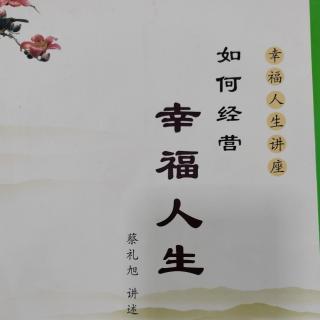 幸福人生讲座
如何经营
幸福人生
蔡礼旭 讲述